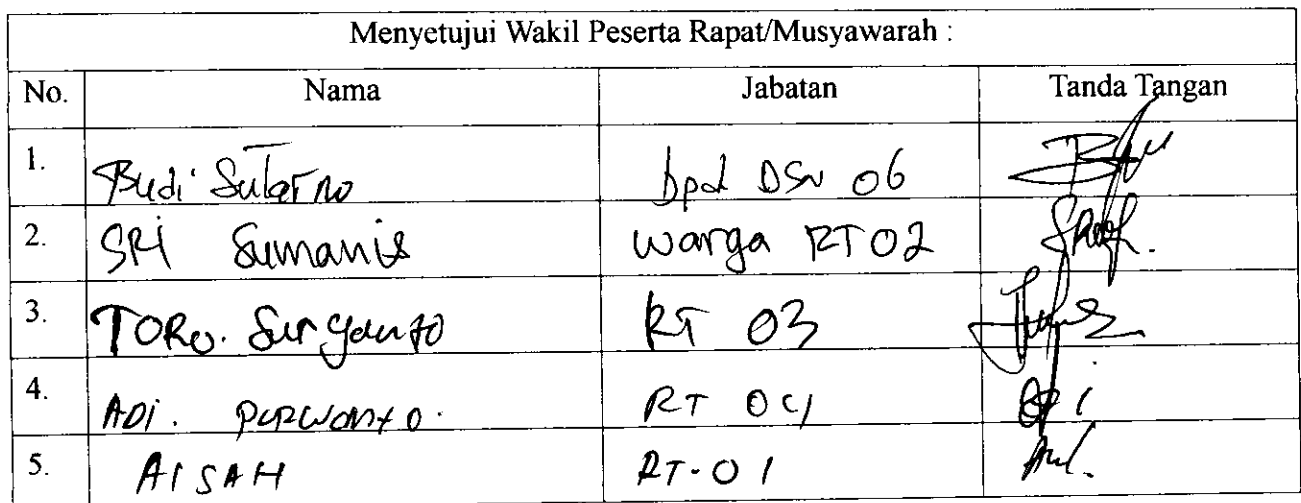 Menyetujui Wakil Peserta Rapat/Musyawarah :
No. Nama Jabatan Tanda Tangan
1. Budi Sutarno bpd DSN 06
2. SRI Sumanis warga RT 02
3. TORO. Suryanto RT 03
4. ADI. PURWANTO. RT 04
5. AISAH RT-01